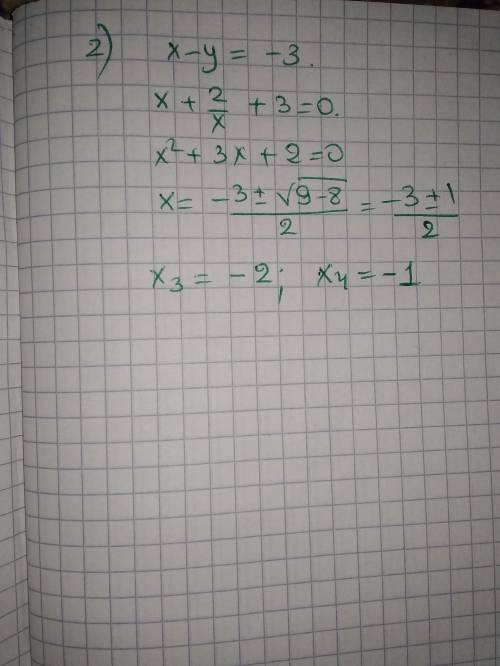 2) x - y = -3.
x + 2/x + 3 = 0.
x² + 3x + 2 = 0
x = -3 ± √9-8 / 2 = -3 ± 1 / 2
x₃ = -2; x₄ = -1